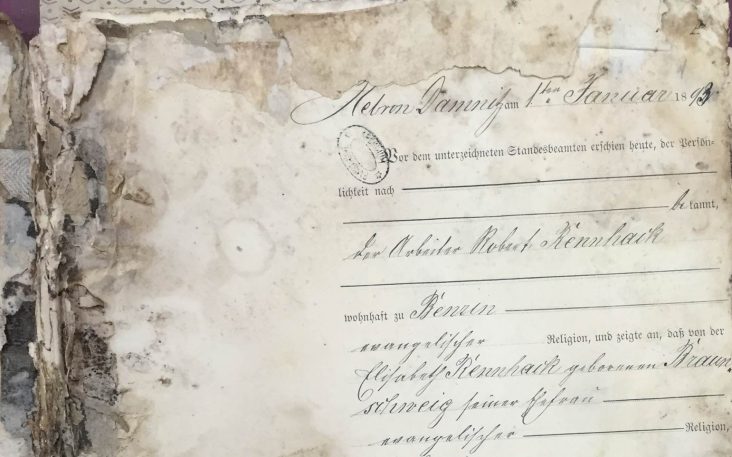 Hebron Damnitz am 1ten Januar 1893
Vor dem unterzeichneten Standesbeamten erschien heute, der Persön-
lichkeit nach
be kannt,
der Arbeiter Robert Kennhack
wohnhaft zu Benzin
evangelischer Religion, und zeigte an, daß von der
Elisabeth Kennhack geborenen Braun-
schweig seiner Ehefrau
evangelischer Religion,